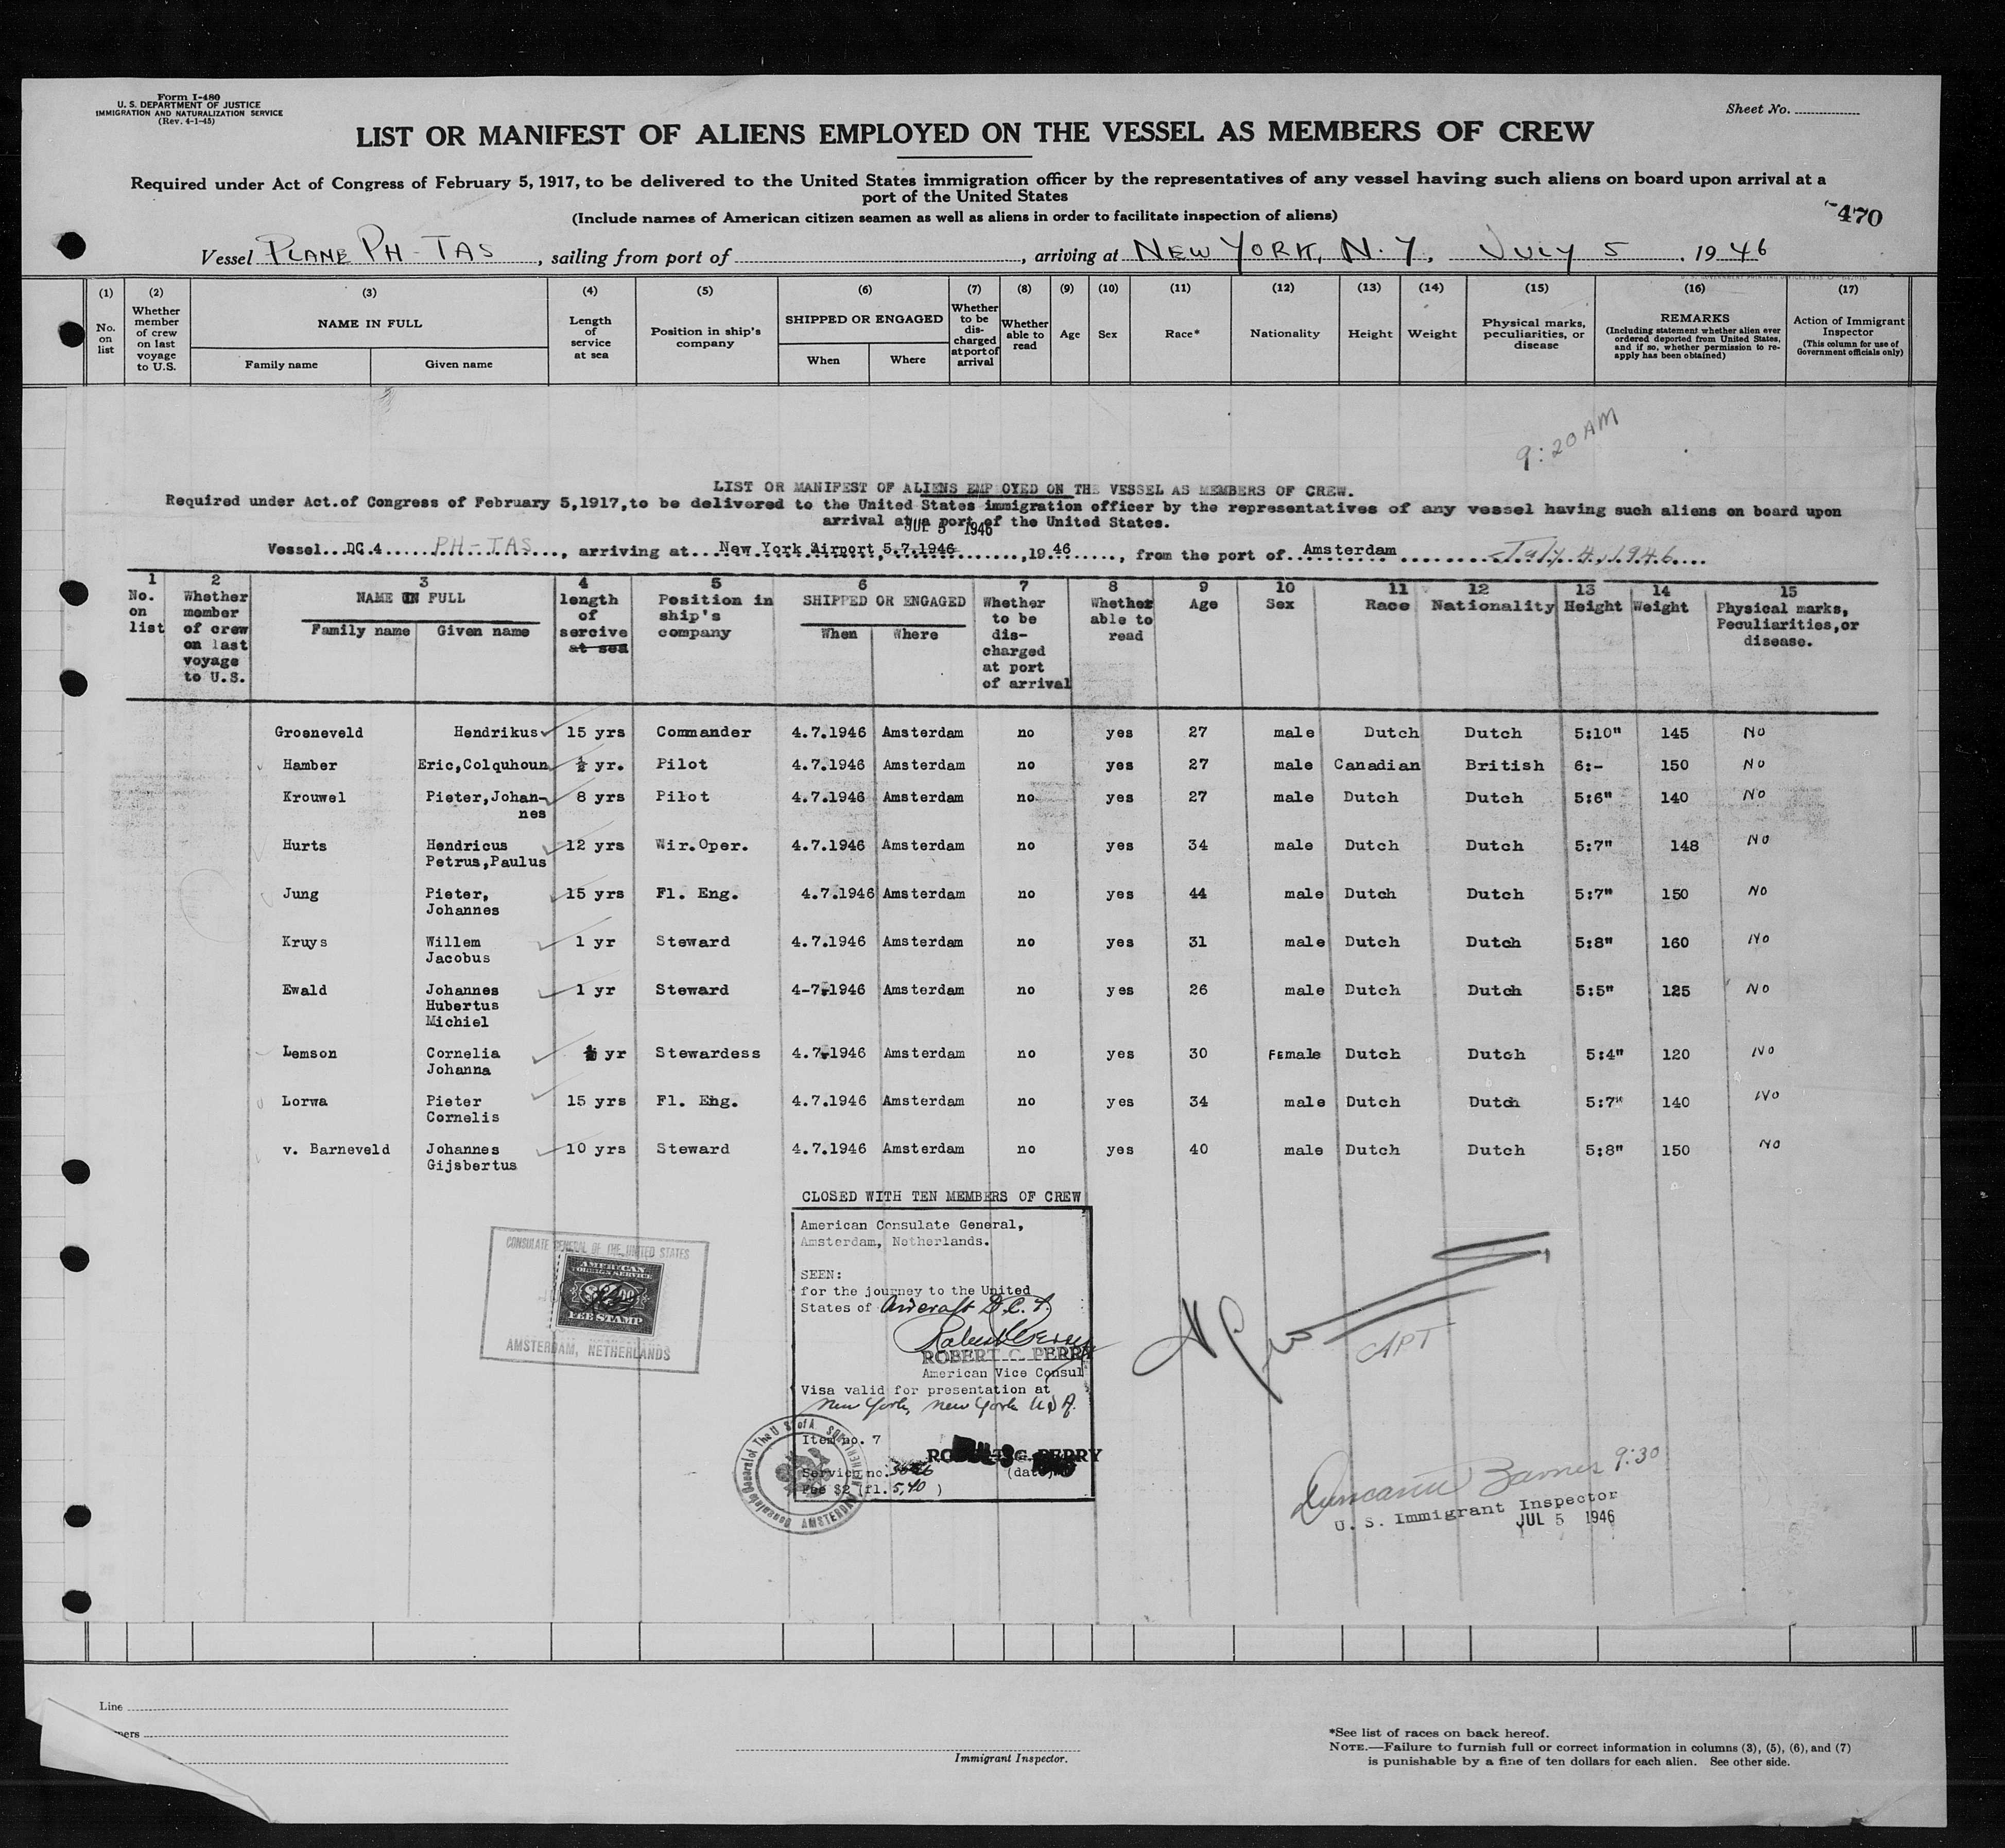 Form I-480
U. S. DEPARTMENT OF JUSTICE
IMMIGRATION AND NATURALIZATION SERVICE
(Rev. 4-1-45)
Sheet No.
LIST OR MANIFEST OF ALIENS EMPLOYED ON THE VESSEL AS MEMBERS OF CREW
Required under Act of Congress of February 5, 1917, to be delivered to the United States immigration officer by the representatives of any vessel having such aliens on board upon arrival at a
port of the United States
(Include names of American citizen seamen as well as aliens in order to facilitate inspection of aliens)
470
Vessel PLANE PH-TAS, sailing from port of , arriving at NEW YORK, N.Y. JULY 5, 1946
(1) (2) (3) (4) (5) (6) (7) (8) (9) (10) (11) (12) (13) (14) (15) (16) (17)
No. on list
Whether member of crew on last voyage to U.S.
NAME IN FULL
Family name Given name
Length of service at sea
Position in ship's company
SHIPPED OR ENGAGED
When Where
Whether to be discharged at port of arrival
Whether able to read
Age
Sex
Race*
Nationality
Height
Weight
Physical marks, peculiarities, or disease
REMARKS
(Including statement whether alien ever ordered deported from United States, and if so, whether permission to reapply has been obtained)
Action of Immigrant Inspector
(This column for use of Government officials only)
9:20 AM
LIST OR MANIFEST OF ALIENS EMP OYED ON THE VESSEL AS MEMBERS OF CREW.
Required under Act.of Congress of February 5,1917,to be delivered to the United States immigration officer by the representatives of any vessel having such aliens on board upon
arrival at a port of the United States.
JUL 5 1946
Vessel...DC 4..... PH-TAS...., arriving at....New York Airport, 5.7.1946.......,19 46....., from the port of..Amsterdam ........July.4.,1946....
1 2 3 4 5 6 7 8 9 10 11 12 13 14 15
No. on list
Whether member of crew on last voyage to U.S.
NAME IN FULL
Family name Given name
length of sercive at sea
Position in ship's company
SHIPPED OR ENGAGED
When Where
Whether to be dis-charged at port of arrival
Whether able to read
Age
Sex
Race
Nationality
Height
Weight
Physical marks, Peculiarities,or disease.
Groeneveld Hendrikus 15 yrs Commander 4.7.1946 Amsterdam no yes 27 male Dutch Dutch 5:10" 145 No
Hamber Eric,Colquhoun ½ yr. Pilot 4.7.1946 Amsterdam no yes 27 male Canadian British 6:- 150 No
Krouwel Pieter,Johan- 8 yrs Pilot 4.7.1946 Amsterdam no yes 27 male Dutch Dutch 5:6" 140 No
nes
Hurts Hendricus 12 yrs Wir.Oper. 4.7.1946 Amsterdam no yes 34 male Dutch Dutch 5:7" 148 No
Petrus,Paulus
Jung Pieter, 15 yrs Fl. Eng. 4.7.1946 Amsterdam no yes 44 male Dutch Dutch 5:7" 150 No
Johannes
Kruys Willem 1 yr Steward 4.7.1946 Amsterdam no yes 31 male Dutch Dutch 5:8" 160 No
Jacobus
Ewald Johannes 1 yr Steward 4-7.1946 Amsterdam no yes 26 male Dutch Dutch 5:5" 125 No
Hubertus
Michiel
Lemson Cornelia ½ yr Stewardess 4.7.1946 Amsterdam no yes 30 FEmale Dutch Dutch 5:4" 120 No
Johanna
Lorwa Pieter 15 yrs Fl. Eng. 4.7.1946 Amsterdam no yes 34 male Dutch Dutch 5:7" 140 No
Cornelis
v. Barneveld Johannes 10 yrs Steward 4.7.1946 Amsterdam no yes 40 male Dutch Dutch 5:8" 150 No
Gijsbertus
CLOSED WITH TEN MEMBERS OF CREW
American Consulate General,
Amsterdam, Netherlands.
SEEN:
for the journey to the United
States of Aircraft D.C.
ROBERT C. PERRY
American Vice Consul
Visa valid for presentation at
New York, New York USA.
Item no. 7
ROBERT C. PERRY
Service no.
(date)
Fee $2 (fl. 5,40 )
CONSULATE GENERAL OF THE UNITED STATES
AMERICAN
FOREIGN SERVICE
FEE STAMP
AMSTERDAM, NETHERLANDS
Consulate General of The U S of A AMSTERDAM NETHERLANDS
CAPT
9:30
U. S. Immigrant Inspector
JUL 5 1946
Line
Immigrant Inspector.
*See list of races on back hereof.
NOTE.—Failure to furnish full or correct information in columns (3), (5), (6), and (7)
is punishable by a fine of ten dollars for each alien. See other side.